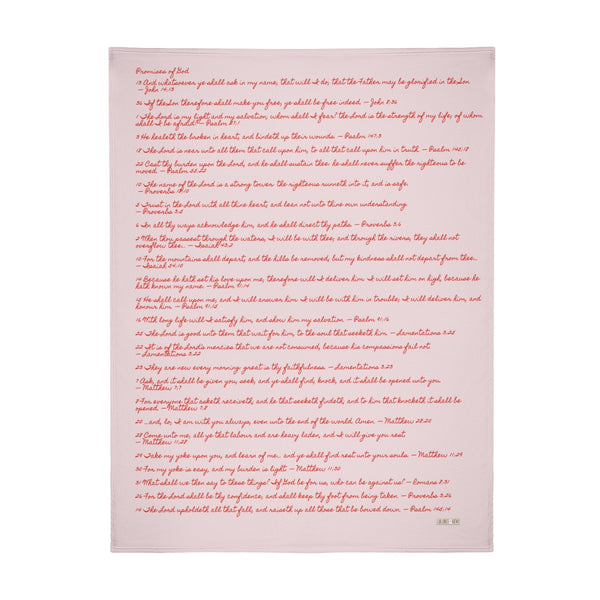 Promises of God
13 And whatsoever ye shall ask in my name, that will I do, that the Father may be glorified in the Son.
— John 14:13
36 If the Son therefore shall make you free, ye shall be free indeed. — John 8:36
1 The Lord is my light and my salvation; whom shall I fear? the Lord is the strength of my life; of whom
shall I be afraid? — Psalm 27:1
3 He healeth the broken in heart, and bindeth up their wounds. — Psalm 147:3
18 The Lord is near unto all them that call upon him, to all that call upon him in truth. — Psalm 145:18
22 Cast thy burden upon the Lord, and he shall sustain thee: he shall never suffer the righteous to be
moved. — Psalm 55:22
10 The name of the Lord is a strong tower: the righteous runneth into it, and is safe.
— Proverbs 18:10
5 Trust in the Lord with all thine heart; and lean not unto thine own understanding.
— Proverbs 3:5
6 In all thy ways acknowledge him, and he shall direct thy paths. — Proverbs 3:6
2 When thou passest through the waters, I will be with thee; and through the rivers, they shall not
overflow thee... — Isaiah 43:2
10 For the mountains shall depart, and the hills be removed; but my kindness shall not depart from thee...
— Isaiah 54:10
14 Because he hath set his love upon me, therefore will I deliver him: I will set him on high, because he
hath known my name. — Psalm 91:14
15 He shall call upon me, and I will answer him: I will be with him in trouble; I will deliver him, and
honour him. — Psalm 91:15
16 With long life will I satisfy him, and show him my salvation. — Psalm 91:16
25 The Lord is good unto them that wait for him, to the soul that seeketh him. — Lamentations 3:25
22 It is of the Lord's mercies that we are not consumed, because his compassions fail not.
— Lamentations 3:22
23 They are new every morning: great is thy faithfulness. — Lamentations 3:23
7 Ask, and it shall be given you; seek, and ye shall find; knock, and it shall be opened unto you.
— Matthew 7:7
8 For everyone that asketh receiveth; and he that seeketh findeth; and to him that knocketh it shall be
opened. — Matthew 7:8
20 ...and, lo, I am with you always, even unto the end of the world. Amen. — Matthew 28:20
28 Come unto me, all ye that labour and are heavy laden, and I will give you rest.
— Matthew 11:28
29 Take my yoke upon you, and learn of me... and ye shall find rest unto your souls. — Matthew 11:29
30 For my yoke is easy, and my burden is light. — Matthew 11:30
31 What shall we then say to these things? If God be for us, who can be against us? — Romans 8:31
26 For the Lord shall be thy confidence, and shall keep thy foot from being taken. — Proverbs 3:26
14 The Lord upholdeth all that fall, and raiseth up all those that be bowed down. — Psalm 145:14